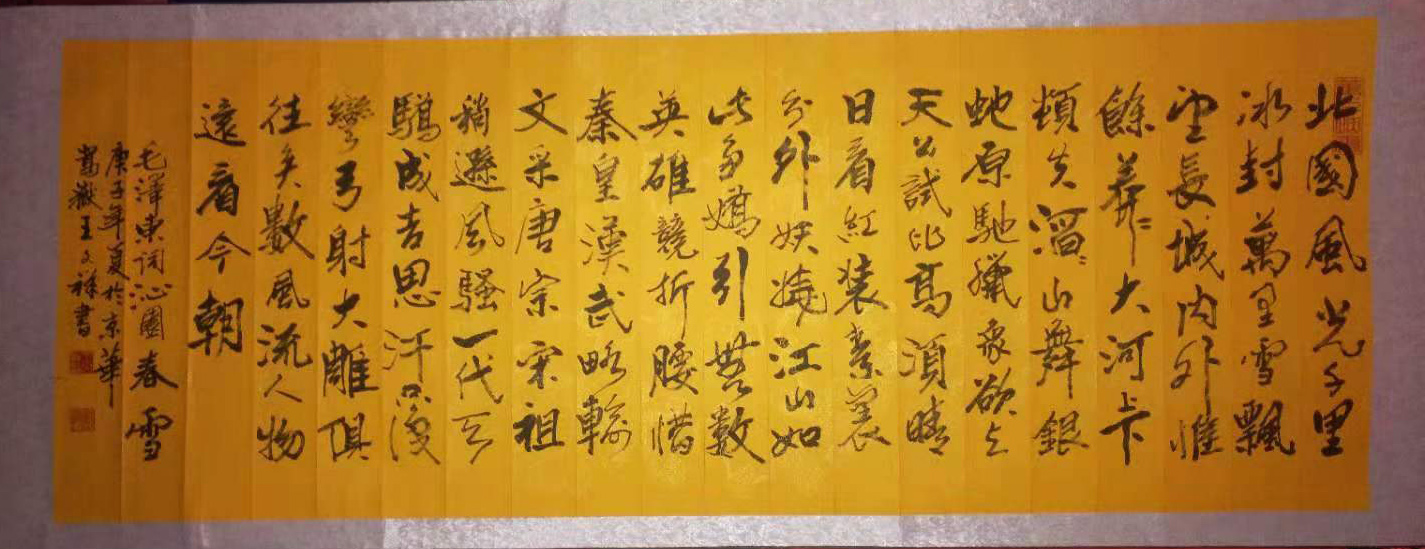 北國風光千里
冰封萬里雪飄
望長城内外惟
餘莽々大河上下
頓失滔々山舞銀
蛇原馳臘象欲与
天公試比高須晴
日看紅装素裹
分外妖嬈江山如
此多嬌引無数
英雄競折腰惜
秦皇漢武略輸
文采唐宗宋祖
稍遜風騷一代天
驕成吉思汗只識
彎弓射大雕俱
往矣數風流人物
還看今朝
毛澤東詞沁園春雪
庚子年夏於京華
嵩嶽王文祥書